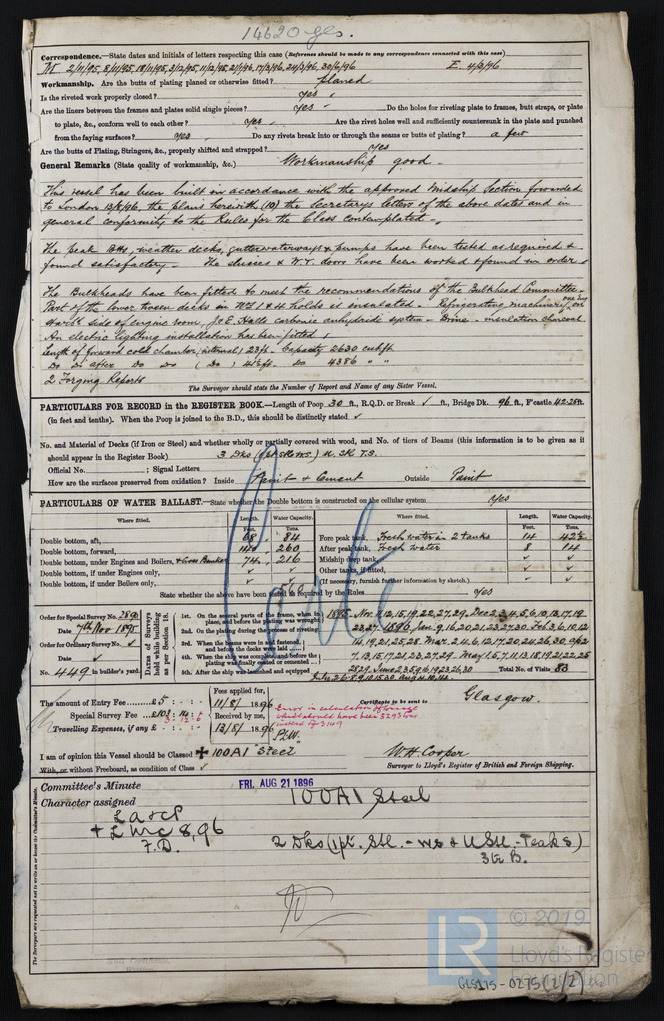 14620 Gls.
Correspondence.—State dates and initials of letters respecting this case (Reference should be made to any correspondence connected with this case)
M 2/11/95, 5/11/95, 18/11/95, 3/12/95, 11/2/96, 2/1/96, 17/3/96, 24/3/96, 30/6/96 E. 4/3/96
Workmanship. Are the butts of plating planed or otherwise fitted? planed
Is the riveted work properly closed? yes
Are the liners between the frames and plates solid single pieces? yes Do the holes for riveting plate to frames, butt straps, or plate
to plate, &c., conform well to each other? yes Are the rivet holes well and sufficiently countersunk in the plate and punched
from the faying surfaces? yes Do any rivets break into or through the seams or butts of plating? a few
Are the butts of Plating, Stringers, &c., properly shifted and strapped? yes
General Remarks (State quality of workmanship, &c.) Workmanship good
This vessel has been built in accordance with the approved Midship Section forwarded
to London 13/8/96, the plans herewith (10) the Secretarys letters of the above dates and in
general conformity to the Rules for the Class contemplated
The peak Bhds, weather decks, gutterwaterways & pumps have been tested as required &
found satisfactory. The sluices & W.T. doors have been worked & found in order.
The Bulkheads have been fitted to meet the recommendations of the Bulkhead Committee.
Part of the lower tween decks in Nos 1 & 4 holds is insulated. Refrigerating machinery on
starbd side of engine room, J & E. Halls carbonic anhydride system - Brine - insulation charcoal
An electric lighting installation has been fitted
Length of forward cold chamber (internal) 23 ft. Capacity 2630 cub ft
Do of after Do Do (Do) 41½ ft. Do 4386 " "
2 Forging Reports
The Surveyor should state the Number of Report and Name of any Sister Vessel.
PARTICULARS FOR RECORD in the REGISTER BOOK.—Length of Poop 30 ft., R.Q.D. or Break ✓ ft., Bridge Dk. 96 ft., F'castle 42.25 ft.
(in feet and tenths). When the Poop is joined to the B.D., this should be distinctly stated ✓
No. and Material of Decks (if Iron or Steel) and whether wholly or partially covered with wood, and No. of tiers of Beams (this information is to be given as it
should appear in the Register Book) 3 Dks
Official No. ; Signal Letters
How are the surfaces preserved from oxidation? Inside Paint & Cement Outside Paint
PARTICULARS OF WATER BALLAST.—State whether the Double bottom is constructed on the cellular system yes
Where fitted. Length. Water Capacity. Where fitted. Length. Water Capacity.
Feet. Tons. Feet. Tons.
Double bottom, aft, 68 84 Fore peak tank, Fresh water in 2 tanks 14 42½
Double bottom, forward, 140 260 After peak tank, Fresh water 8 14
Double bottom, under Engines and Boilers, & Cross Bunker 74 216 Midship deep tank ✓ ✓
Double bottom, if under Engines only, ✓ Other tanks, if fitted, ✓ ✓
Double bottom, if under Boilers only, ✓ (If necessary, furnish further information by sketch.)
560
State whether the above have been tested as required by the Rules yes
Conte
Order for Special Survey No. 2890
Date 7th Nov 1895
Order for Ordinary Survey No. ✓
Date ✓
No. 449 in builder's yard.
Dates of Surveys held while building as per Section 18.
1st. On the several parts of the frame, when in place, and before the plating was wrought
2nd. On the plating during the process of riveting
3rd. When the beams were in and fastened, and before the decks were laid
4th. When the ship was complete, and before the plating was finally coated or cemented
5th. After the ship was launched and equipped
1895 Nov. 11, 12, 15, 19, 22, 27, 29, Dec 2, 3, 4, 5, 6, 10, 13, 17, 19
23, 27. 1896 Jan. 9, 16, 20, 21, 23, 27, 30 Feb. 3, 6, 10, 12
14, 19, 21, 25, 28. Mar. 2, 11, 6, 12, 17, 20, 24, 26, 30 Apl 2
7, 13, 15, 17, 21, 23, 27, 29. May 1, 5, 7, 11, 13, 18, 19, 21, 22, 25
28, 29. June 2, 3, 5, 9, 16, 19, 23, 26, 30 Total No. of Visits 83
The amount of Entry Fee £5 Fees applied for,
Special Survey Fee 11/8/1896
Travelling Expenses, if any £ Received by me,
13/8/1896
Certificate to be sent to Glasgow.
Error in calculation of tonnage
which should have been 3293 tons
instead of 3109
I am of opinion this Vessel should be Classed ✠ 100A1 "Steel"
With, or without Freeboard, as condition of Class ✓
W H Cooper
Surveyor to Lloyd's Register of British and Foreign Shipping.
Committee's Minute FRI. AUG 21 1896
Character assigned 100A1 Steel
LA & CP
+ LMC 8,96
F.D.
2 Dks (1 pt. Stl. - ws & U Stl. - Teak S)
3 tr B.
The Surveyors are requested not to write on or below the Committee's Minute.
LR
© 2019
Lloyd's Register
Foundation
GLS175-0275 (2/2)